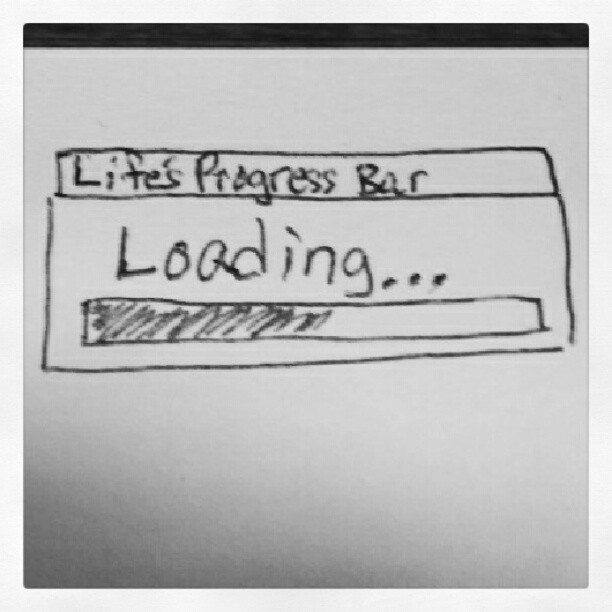 Life's Progress Bar
Loading...